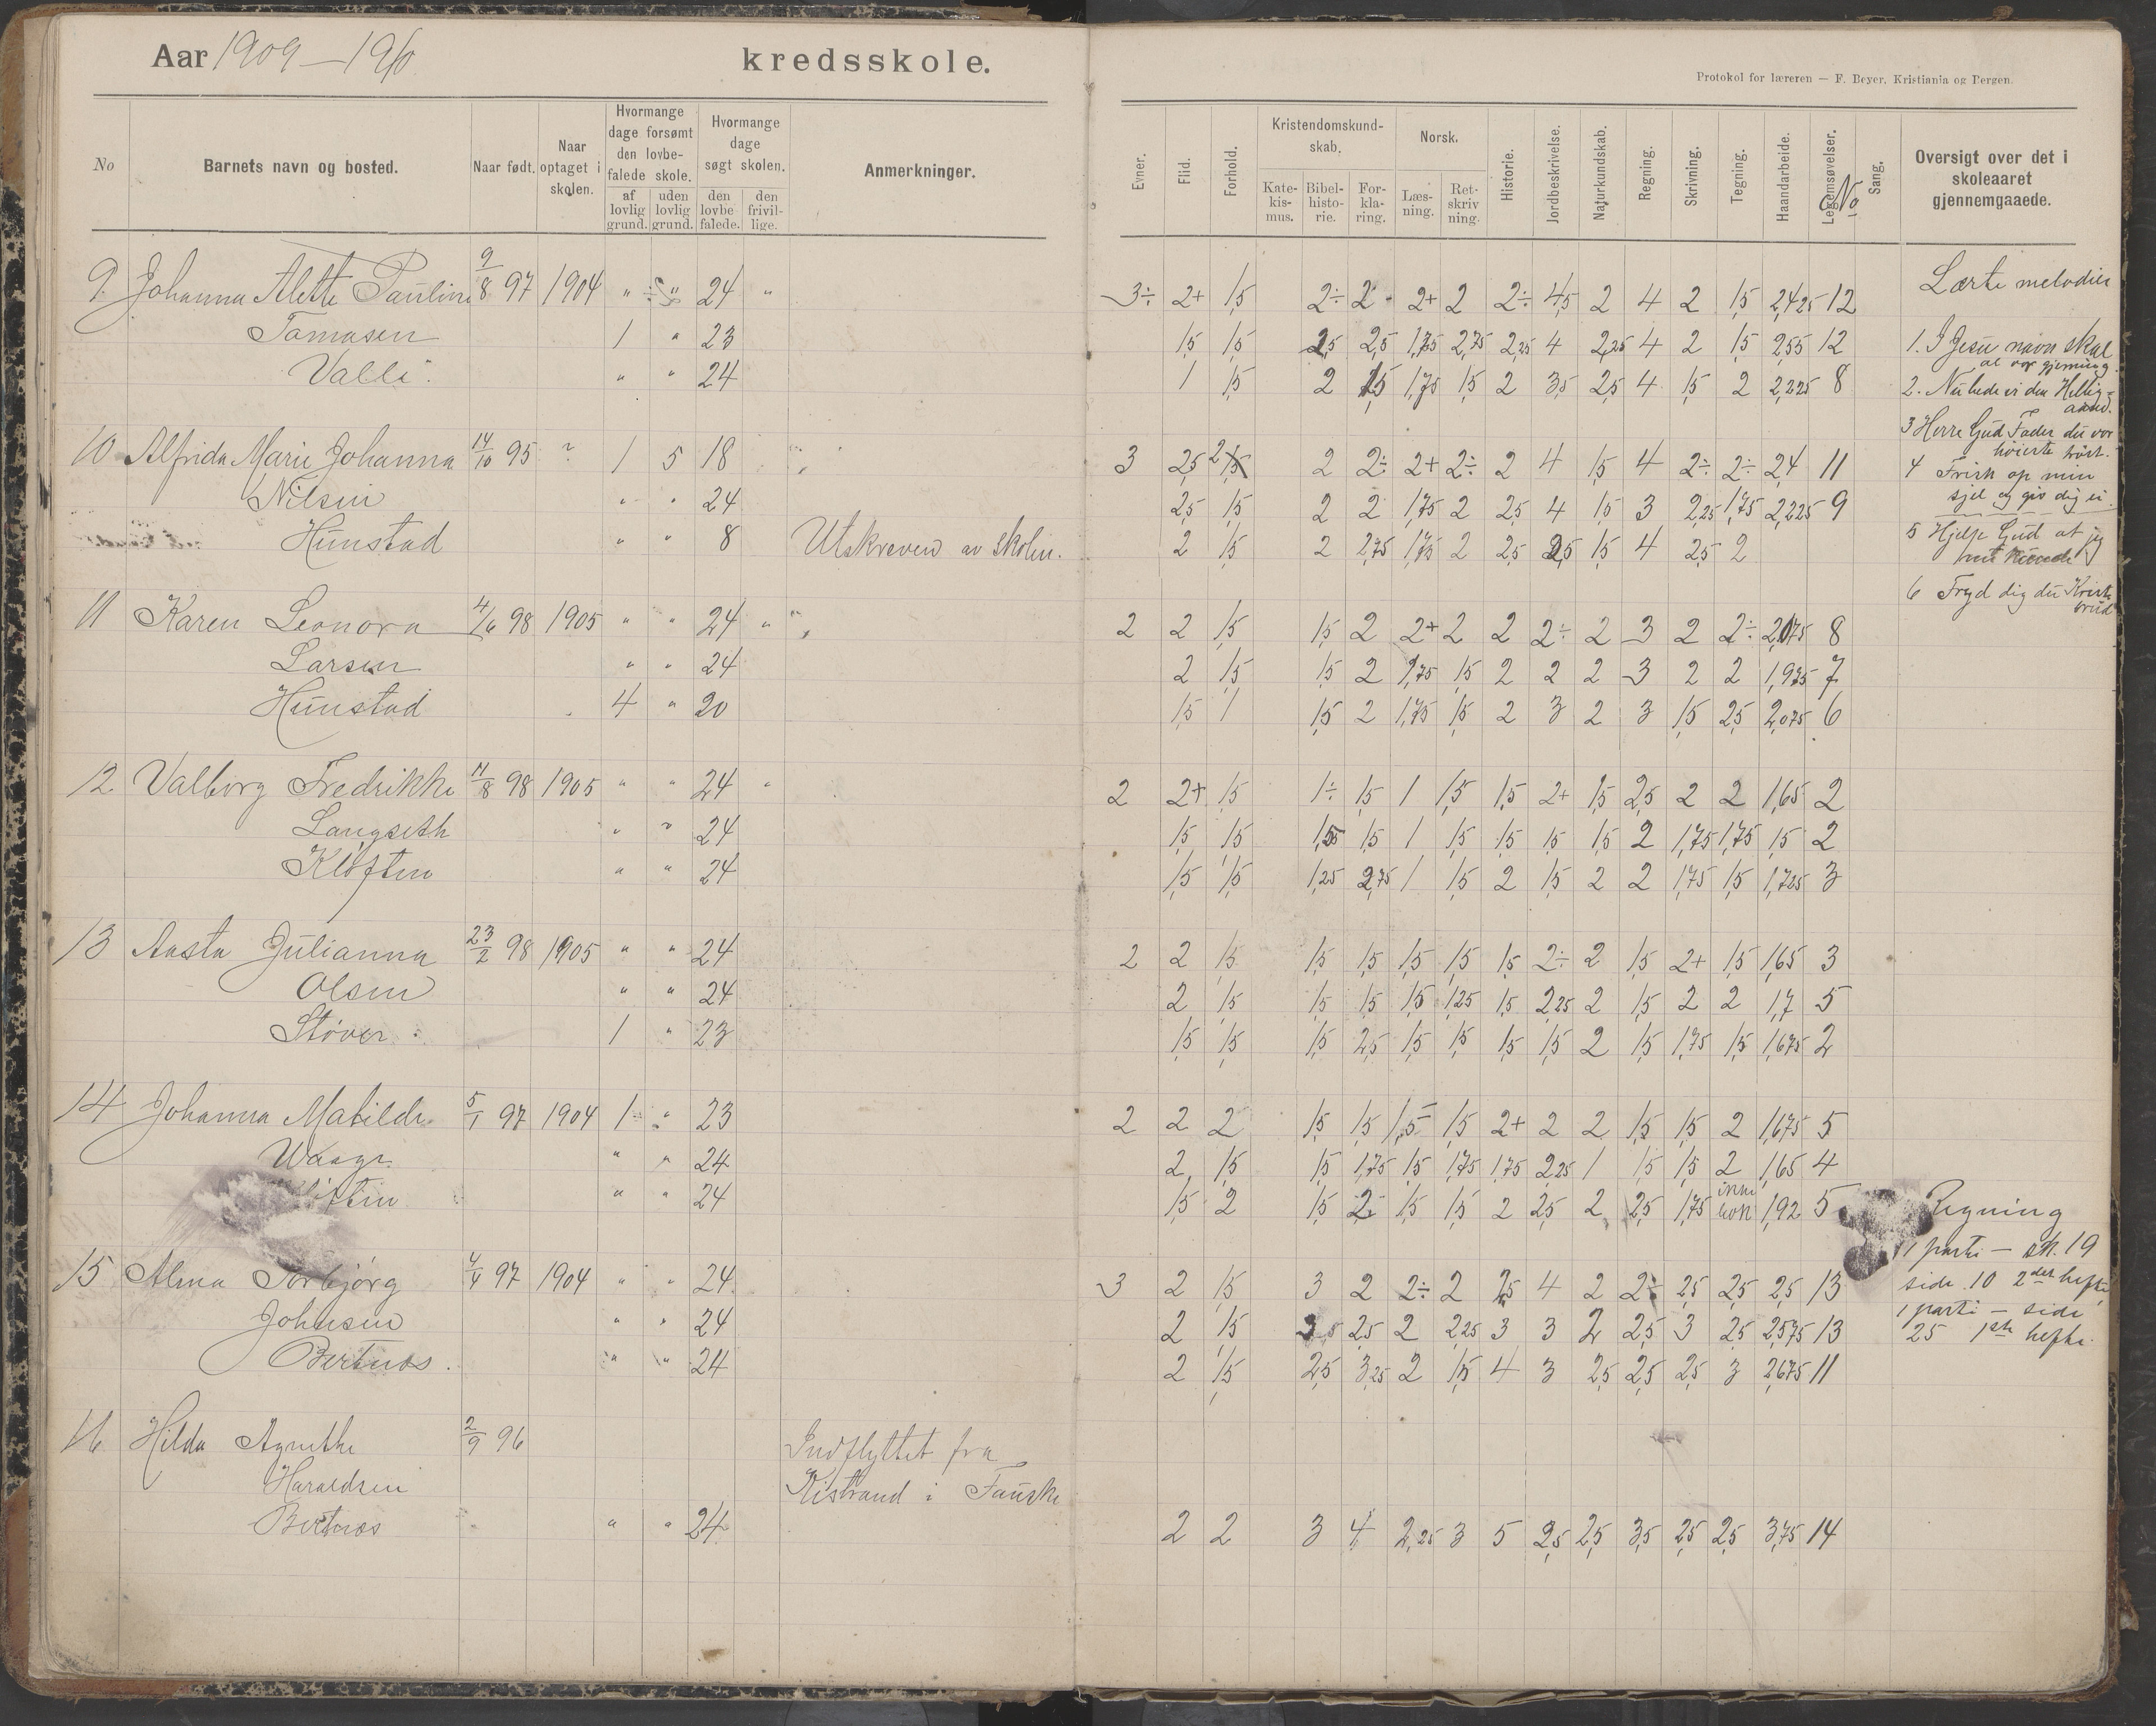 Aar 1909–1910 kredsskole.
Protokol for læreren — F. Beyer, Kristiania og Bergen.
No Barnets navn og bosted. Naar født. Naar optaget i skolen. Hvormange dage forsømt den lovbefalede skole. af lovlig grund. uden lovlig grund. Hvormange dage søgt skolen. den lovbefalede. den frivillige. Anmerkninger.
Evner. Flid. Forhold. Kristendomskundskab. Katekismus. Bibelhistorie. Forklaring. Norsk. Læsning. Retskrivning. Historie. Jordbeskrivelse. Naturkundskab. Regning. Skrivning. Tegning. Haandarbeide. Legemsøvelser. No Sang. Oversigt over det i skoleaaret gjennemgaaede.
9. Johanna Alette Pauline 9/8 97 1904 " " 24 " 3÷ 2+ 1,5 2÷ 2 2+ 2 2÷ 4,5 2 4 2 1,5 2,425 12
Tomasen 1 " 23 1,5 1,5 2,5 2,5 1,75 2,75 2,25 4 2,25 4 2 1,5 2,55 12
Valli " " 24 1 1,5 2 1,5 1,75 1,5 2 3,5 2,5 4 1,5 2 2,225 8
10 Alfrida Marie Johanna 14/10 95 ? 1 5 18 3 2,5 2 2 2÷ 2+ 2÷ 2 4 1,5 4 2÷ 2÷ 2,4 11
Nilsen " " 24 2,5 1,5 2 2 1,75 2 2,5 4 1,5 3 2,25 1,75 2,225 9
Hunstad " " 8 Utskreven av skolen. 2 1,5 2 2,75 1,75 2 2,5 2,5 1,5 4 2,5 2
11 Karen Leonora 4/6 98 1905 " " 24 " 2 2 1,5 1,5 2 2+ 2 2 2÷ 2 3 2 2÷ 2,075 8
Larsen " " 24 2 1,5 1,5 2 1,75 1,5 2 2 2 3 2 2 1,975 7
Hunstad 4 " 20 1,5 1 1,5 2 1,75 1,5 2 3 2 3 1,5 2,5 2,075 6
12 Valborg Fredrikke 11/8 98 1905 " " 24 " 2 2+ 1,5 1÷ 1,5 1 1,5 1,5 2+ 1,5 2,5 2 2 1,65 2
Langseth " " 24 1,5 1,5 1,25 1,5 1 1,5 1,5 1,5 1,5 2 1,75 1,75 1,5 2
Kløften " " 24 1,5 1,5 1,25 2,75 1 1,5 2 1,5 2 2 1,75 1,5 1,725 3
13 Aasta Julianna 23/2 98 1905 " " 24 2 2 1,5 1,5 1,5 1,5 1,5 1,5 2÷ 2 1,5 2+ 1,5 1,65 3
Olsen " " 24 2 1,5 1,5 1,5 1,5 1,25 1,5 2,25 2 1,5 2 2 1,7 5
Støver 1 " 23 1,5 1,5 1,5 2,5 1,5 1,5 1,5 1,5 2 1,5 1,75 1,5 1,675 2
14 Johanna Matilde 5/1 97 1904 1 " 23 2 2 2 1,5 1,5 1,5 1,5 2+ 2 2 1,5 1,5 2 1,675 5
Waage " " 24 2 1,5 1,5 1,75 1,5 1,75 1,75 2,25 1 1,5 1,5 2 1,65 4
" " 24 1,5 2 1,5 2 1,5 1,5 2 2,5 2 2,5 1,75 ikke bok 1,92 5
15 Alma Torbjørg 4/4 97 1904 " " 24 3 2 1,5 3 2 2÷ 2 2,5 4 2 2÷ 2,5 2,5 2,5 13
Johnsen " " 24 2 1,5 2,5 2 2,25 3 3 2 2,5 3 2,5 2,575 13
Bertnes. " " 24 2 1,5 2,5 3,25 2 1,5 4 3 2,5 2,5 2,5 3 2,675 11
16 Hilda Agnethe 2/9 96 Indflyttet fra
Haraldsen Kistrand i Fauske
Bertnes " " 24 2 2 3 4 2,25 3 5 2,5 2,5 3,5 2,5 2,5 3,75 14
Lærte melodier
1. I Jesu navn skal
al vor gjerning.
2. Nu bede vi den Hellig=
aand.
3 Herre Gud Fader du vor
høieste trøst.
4 Frisk op min
sjel og giv dig ei
5 Hjelp Gud at jeg
6 Fryd dig du Kristi
brud
Regning
1 parti — sk. 19
side 10 2den hefte,
1 parti — side
25 1ste hefte.